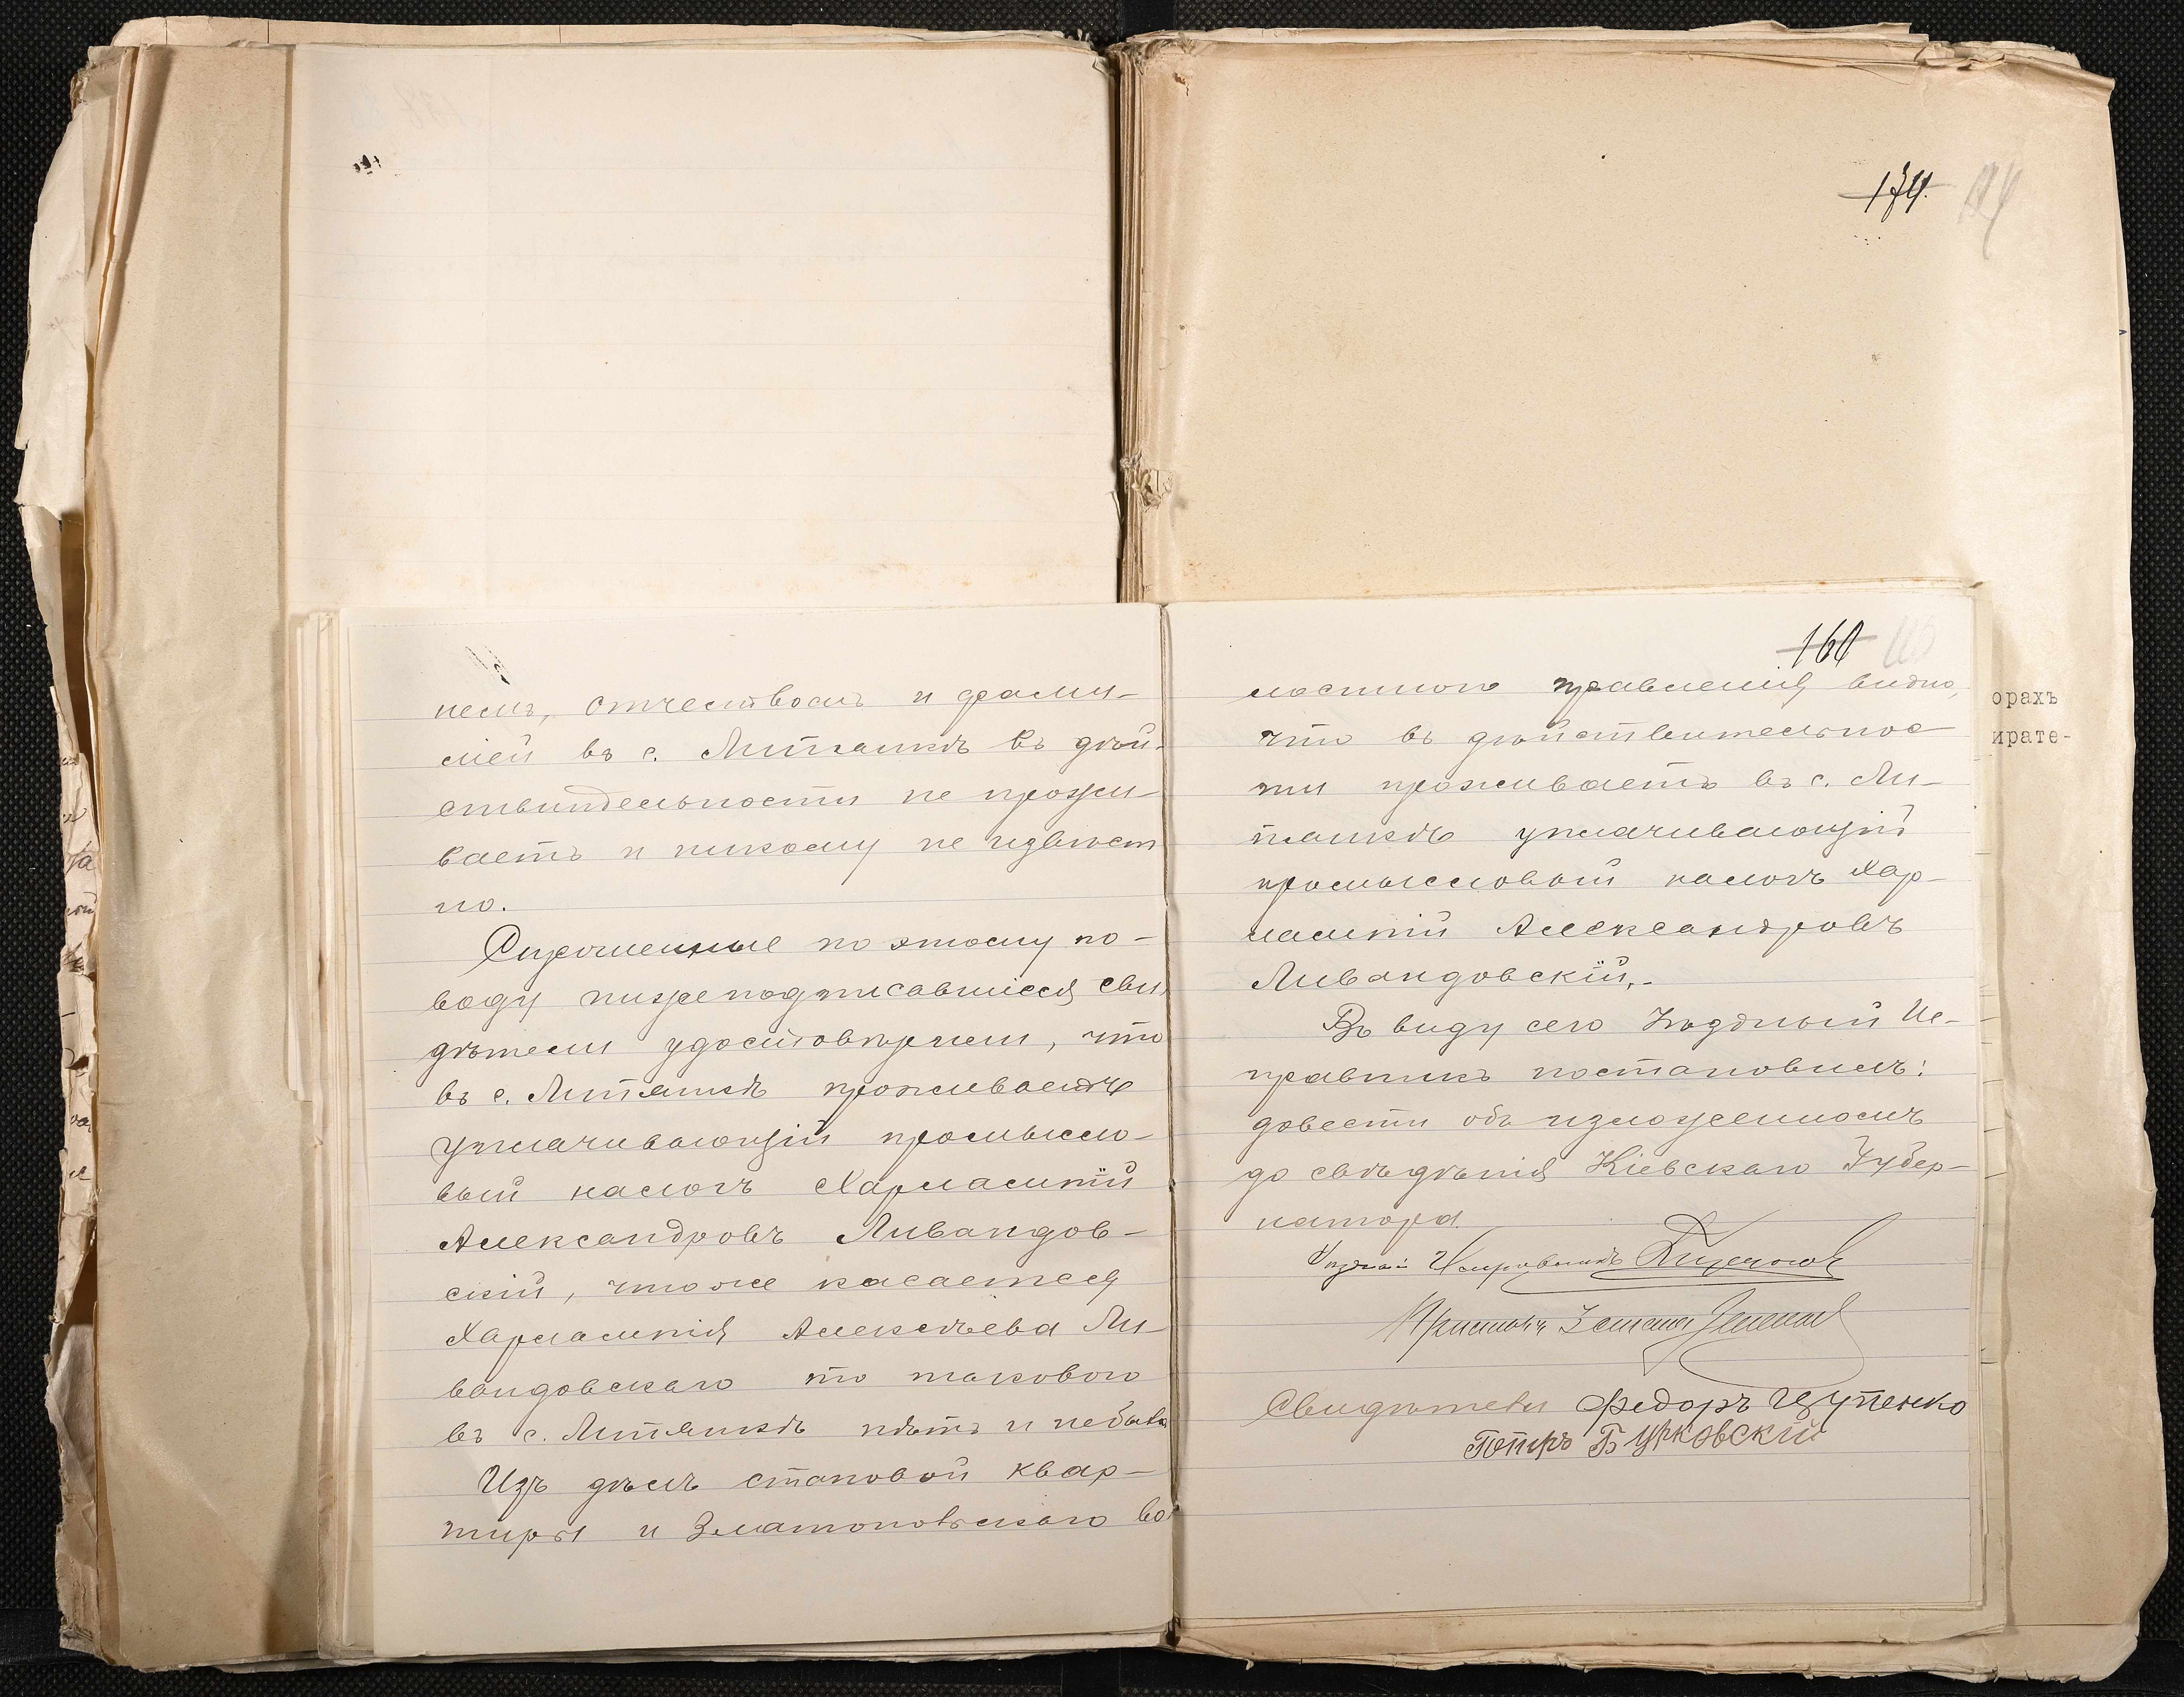 174.
160
немъ, отчествомъ и фами-
ліей въ с. Литвинкѣ въ дѣй-
ствительности не прожи-
ваетъ и никому не извѣст
но.
Спрошенные по этому по-
воду нижеподписавшіеся сви
дѣтели удостовѣрили, что
въ с. проживаетъ
уплачивающій промысло-
вый налогъ Харлампій
Александровъ Ливандов-
скій, что же касается
Харлампія Алексѣева Ли-
вандовскаго то такового
въ с. нѣтъ и небыло
Изъ дѣлъ становой квар-
тиры и Златопольскаго во
лостного правленія видно,
что въ дѣйствительнос
ти проживаетъ въ с. Ли-
уплачивающій
промысловый налогъ Хар-
лампій Александровъ
Ливандовскій.-
Въ виду сего Уѣздный Ис-
правникъ постановилъ:
довести объ изложенномъ
до свѣдѣнія Кіевскаго Губер-
натора.
Уѣздный Исправникъ
Свидѣтели Федоръ Цупенко
Бурковскій
орахъ
ирате-